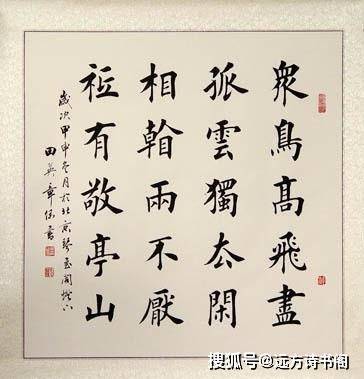 衆鳥高飛盡
孤雲獨厺閑
相看兩不厭
祇有敬亭山
歲次甲申冬月於北京琴玉閣燈下
田英章 書
搜狐号@远方诗书阁